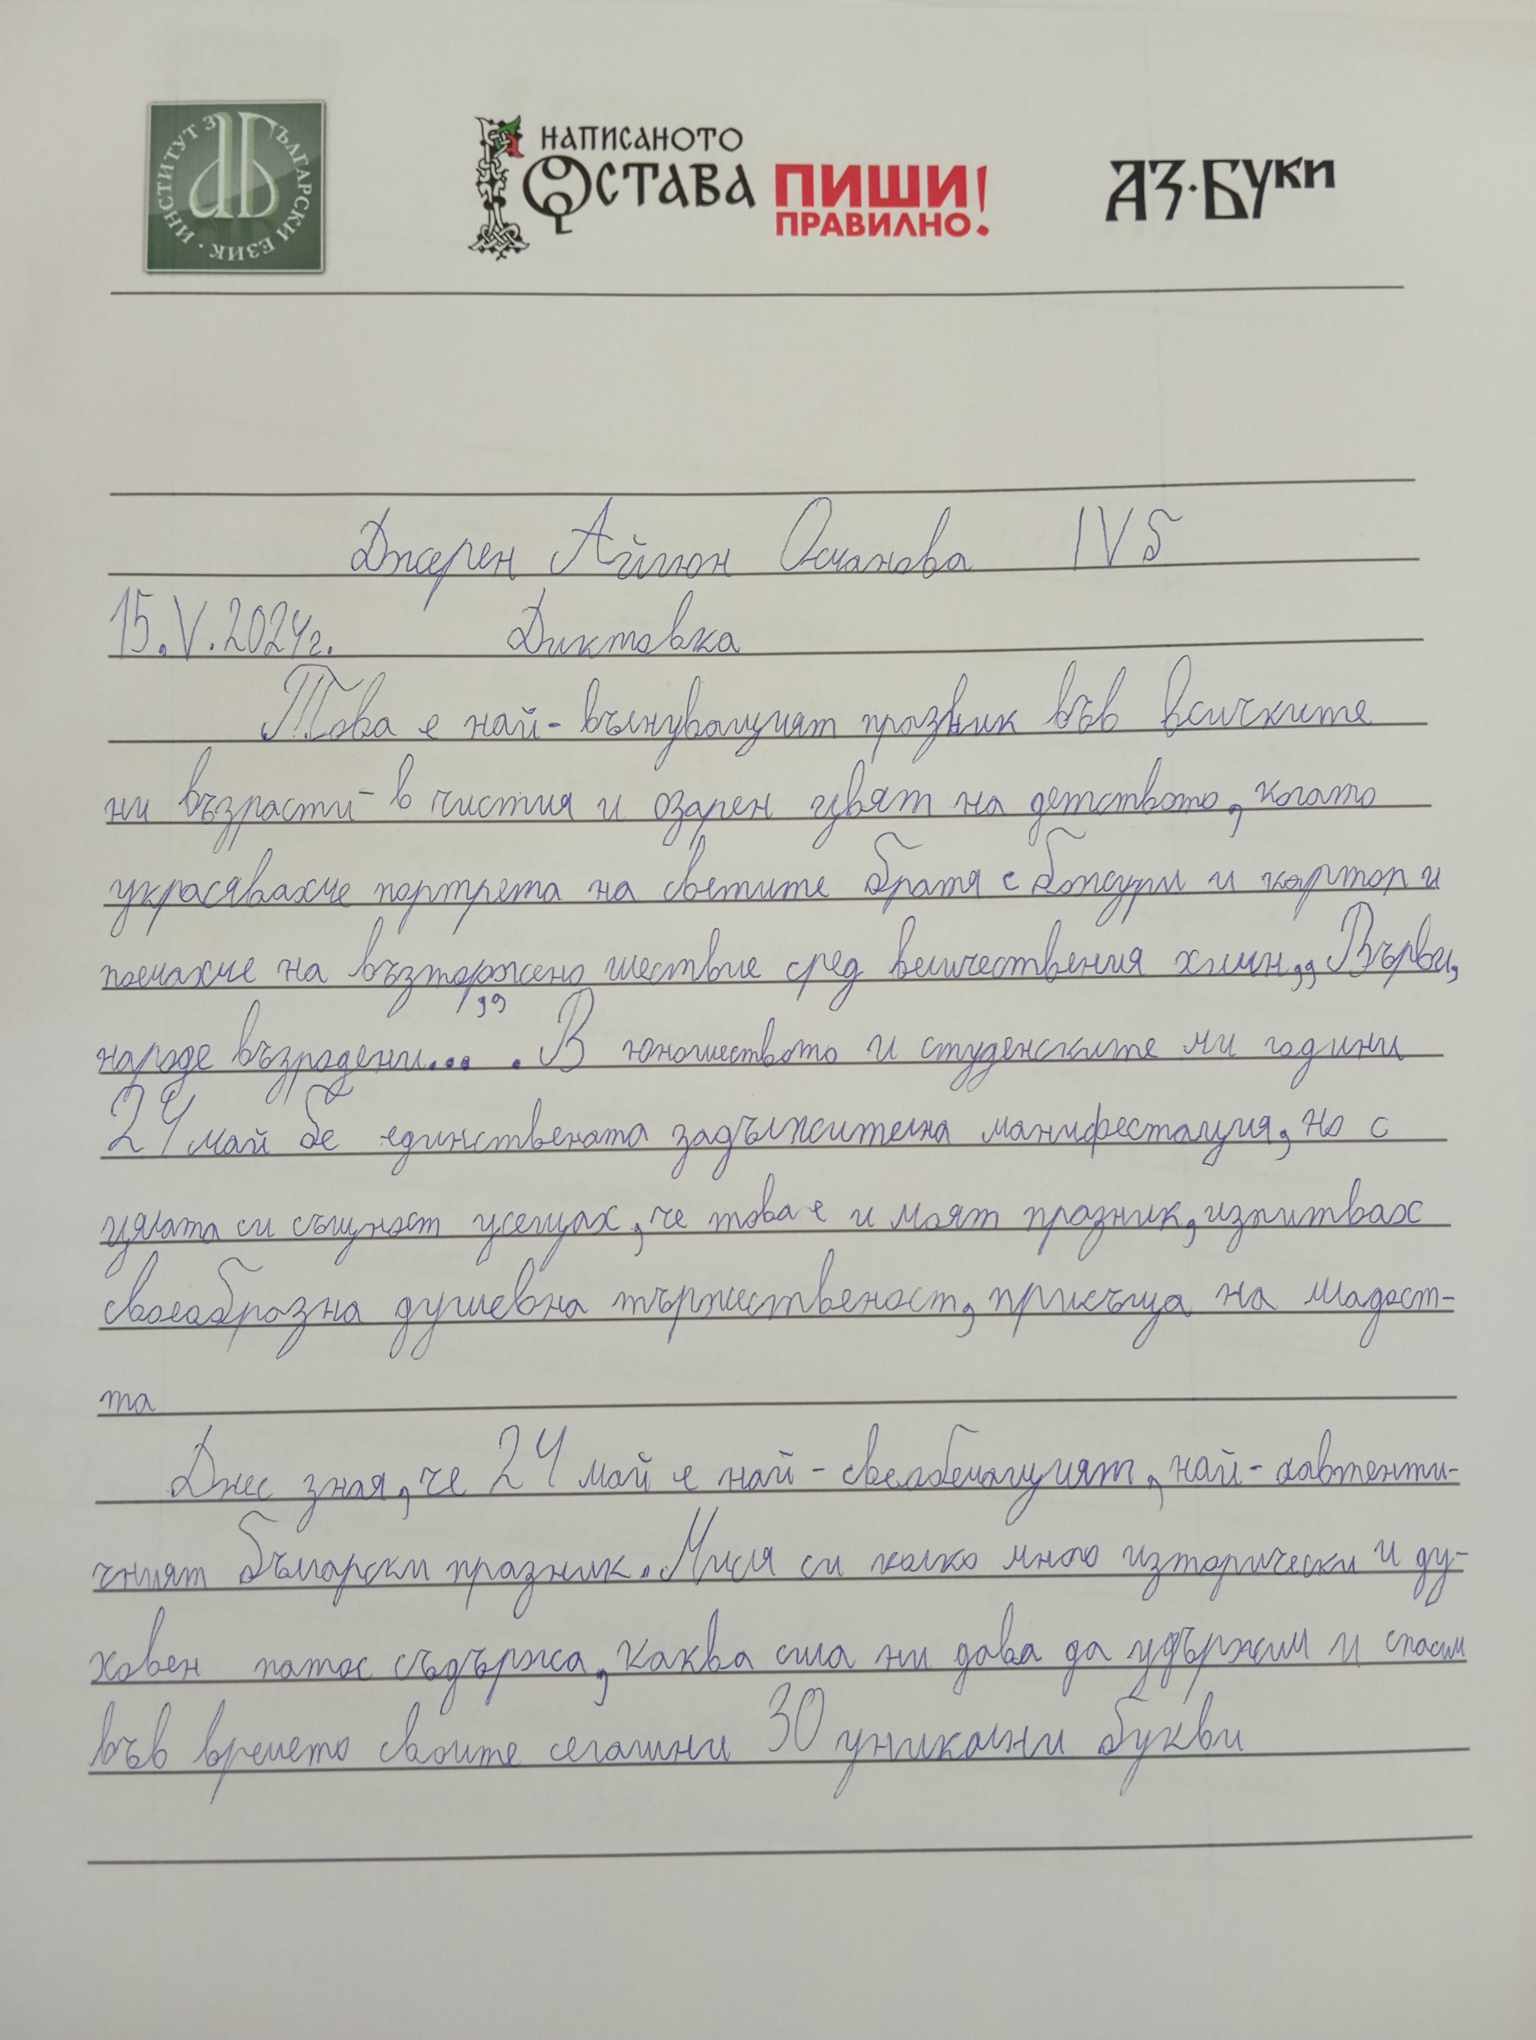 ИНСТИТУТ ЗА БЪЛГАРСКИ ЕЗИК
НАПИСАНОТО ОСТАВА ПИШИ ПРАВИЛНО!
АЗ·БУКИ
Джерен Айлин Османова IV б
15.V.2024г. Диктовка
Това е най-вълнуващият празник във всичките
ни възрасти - в чистия и озарен цвят на детството, когато
украсявахме портрета на светите братя с божури и картон и
поемахме на възторжено шествие сред величествения химн,, Върви,
народе възродени...”. В юношеството и студенските ми години
24 май бе единствената задължителна манифестация, но с
цялата си същност усещах, че това е и моят празник, изпитвах
своеобразна душевна тържественост, присъща на младост-
та
Днес зная, че 24 май е най-свелобенащият, най-автенти-
чният български празник. Мисля си колко много изторически и ду-
ховен патос съдържа, каква сила ни дава да удържим и спасим
във времето своите сегашни 30 уникални букви